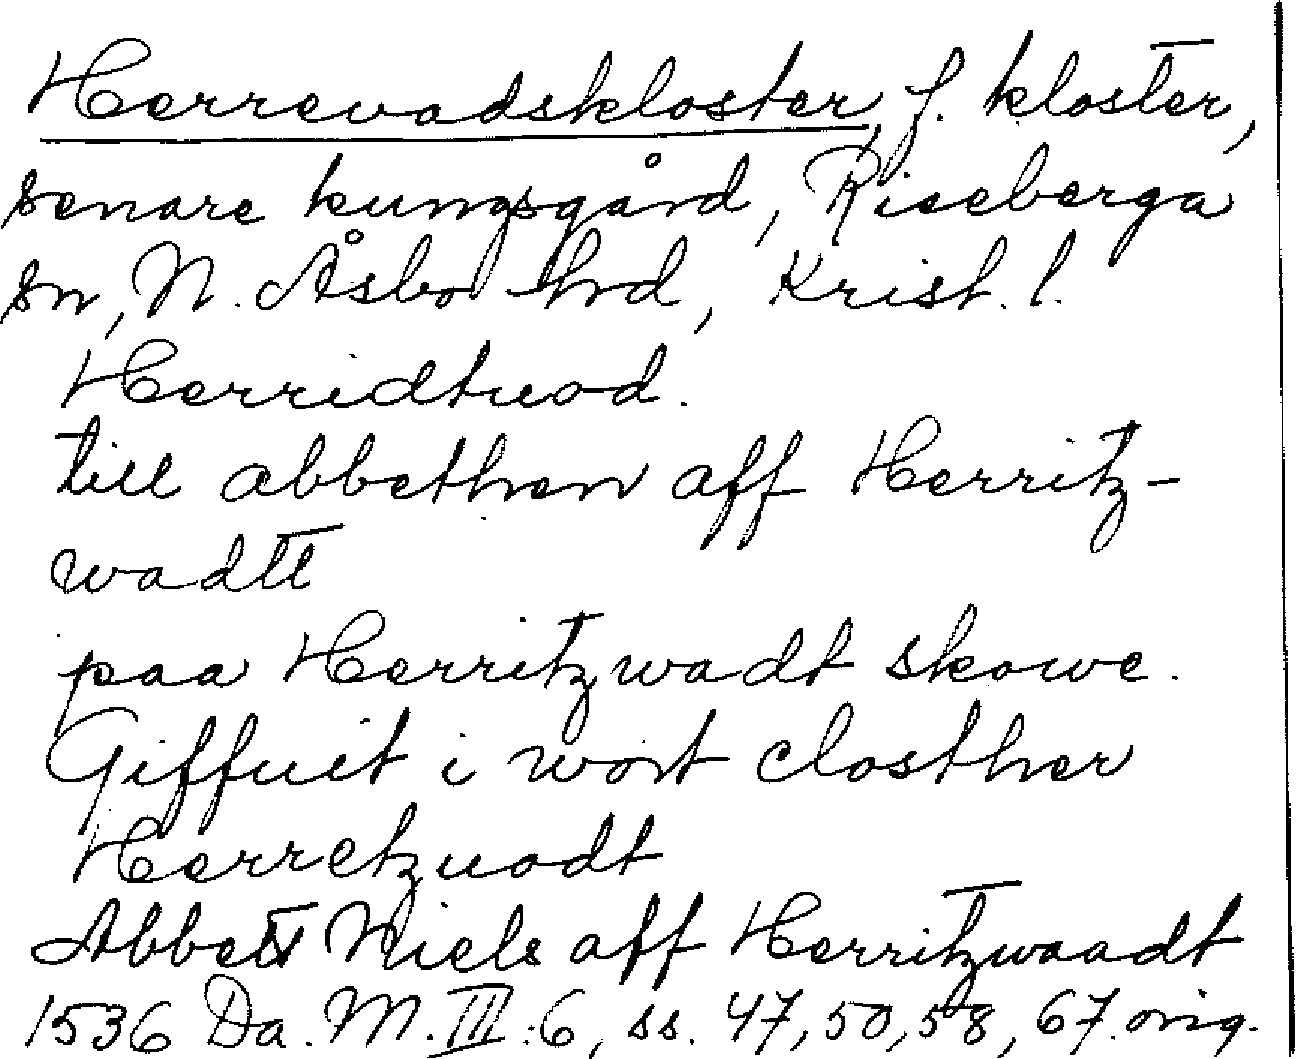 Herrevadskloster, f. kloster,
senare kungsgård, Riseberga
sn, N. Åsbo hrd, Krist. l.
Herridtuad.
till abbethen aff Herritz-
wadtt
paa Herritzwadt skowe.
Giffuit i wort closther
Herretzuadt
Abbett Niels aff Herritzwaadt
1536 Da. M. III:6, ss. 47, 50, 58, 67. orig.